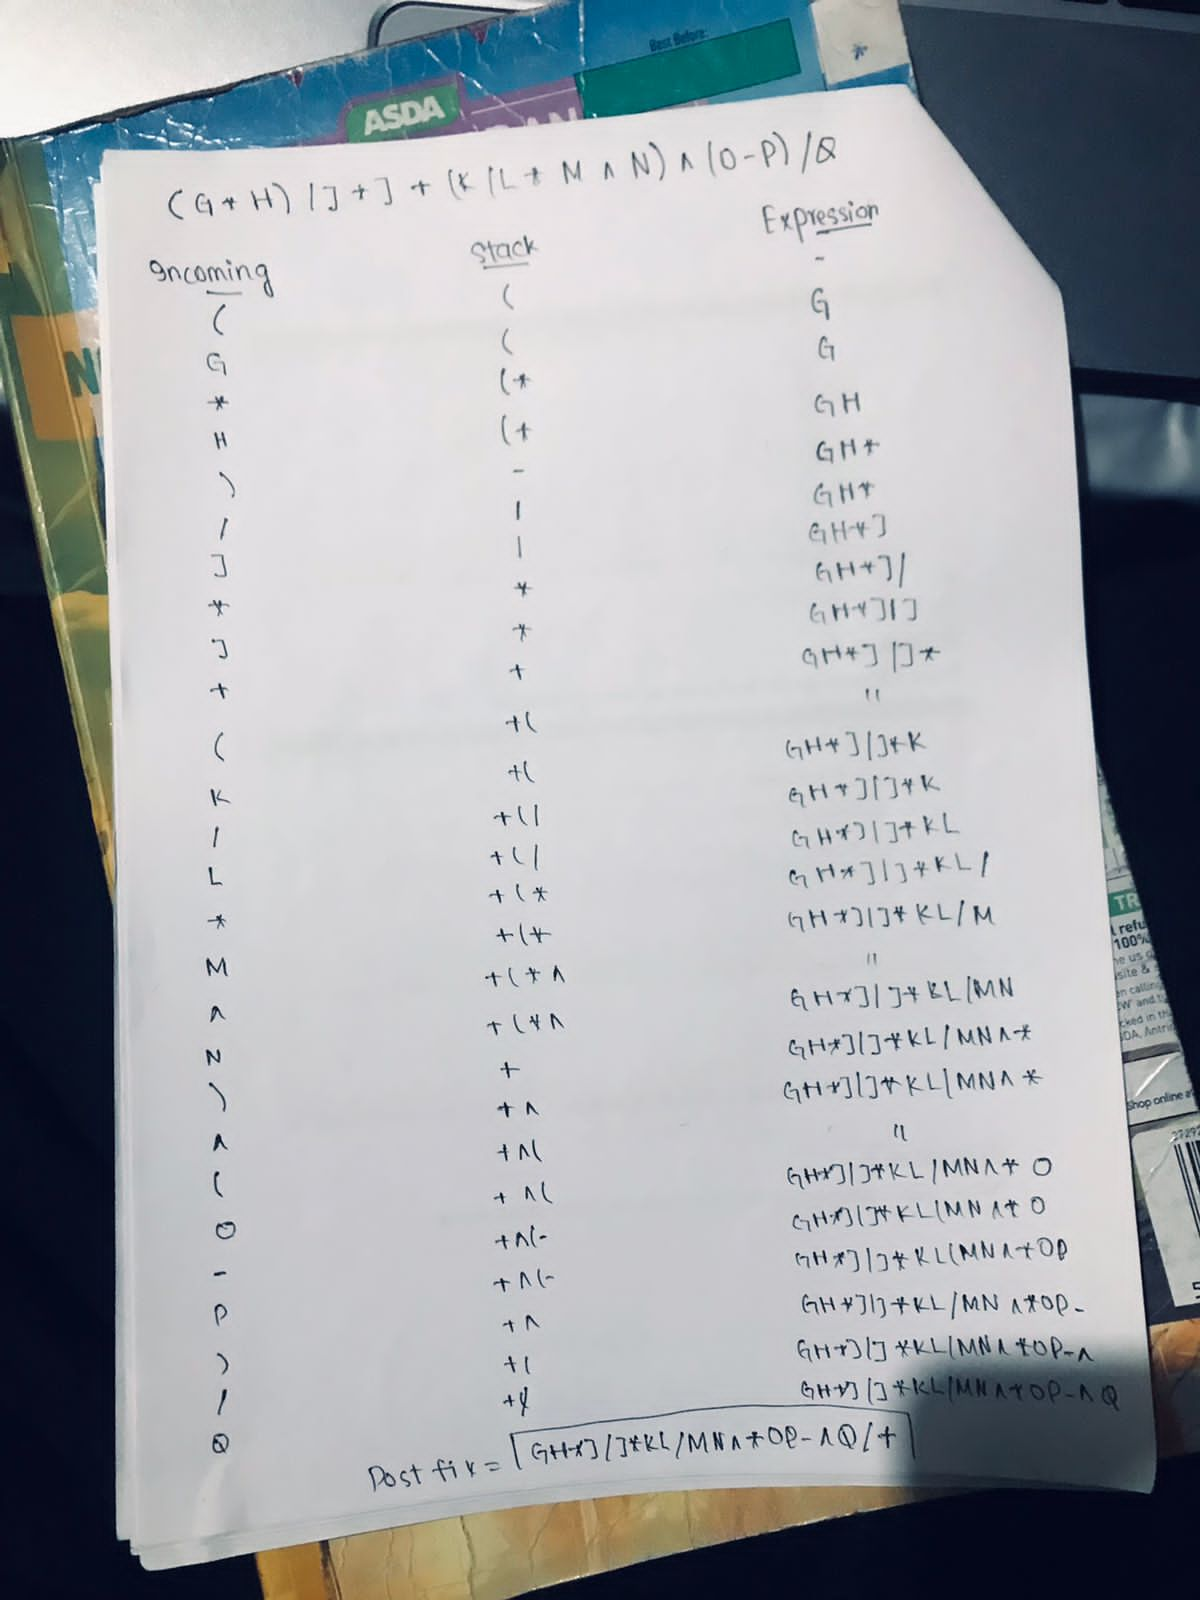 Best Before:
ASDA
(G*H)/J*J+(K/L*M^N)^(O-P)/Q
Incoming Stack Expression
( ( -
G ( G
* (* G
H (* GH
) - GH*
/ / GH*
J / GH*J
* * GH*J/
J * GH*J/J
+ + GH*J/J*
( +( "
K +( GH*J/J*K
/ +(/ GH*J/J*K
L +(/ GH*J/J*KL
* +(* GH*J/J*KL/
M +(* GH*J/J*KL/M
^ +(*^ "
N +(*^ GH*J/J*KL/MN
) + GH*J/J*KL/MN^*
^ +^ GH*J/J*KL/MN^*
( +^( "
O +^( GH*J/J*KL/MN^*O
- +^(- GH*J/J*KL/MN^*O
P +^(- GH*J/J*KL/MN^*OP
) +^ GH*J/J*KL/MN^*OP-
/ +/ GH*J/J*KL/MN^*OP-^
Q +/ GH*J/J*KL/MN^*OP-^Q
Postfix = GH*J/J*KL/MN^*OP-^Q/+
TR
100%
Shop online